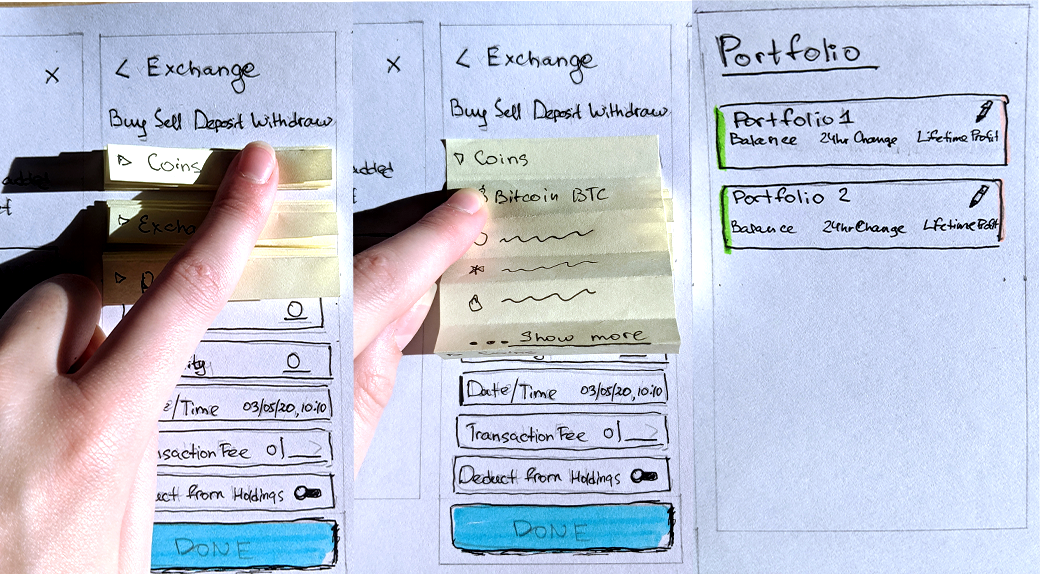 X
< Exchange
Buy Sell Deposit Withdraw
▷ Coins
▷ Excha
▷
0
ity 0
e/Time 03/05/20, 10:10
saction Fee 0
uct from Holdings
DONE
X
< Exchange
Buy Sell Deposit Withdraw
▽ Coins
Bitcoin BTC
... Show more
Date/Time 03/05/20, 10:10
Transaction Fee 0
Deduct from Holdings
DONE
Portfolio
Portfolio 1
Balance 24hr Change Lifetime Profit
Portfolio 2
Balance 24hr Change Lifetime Profit